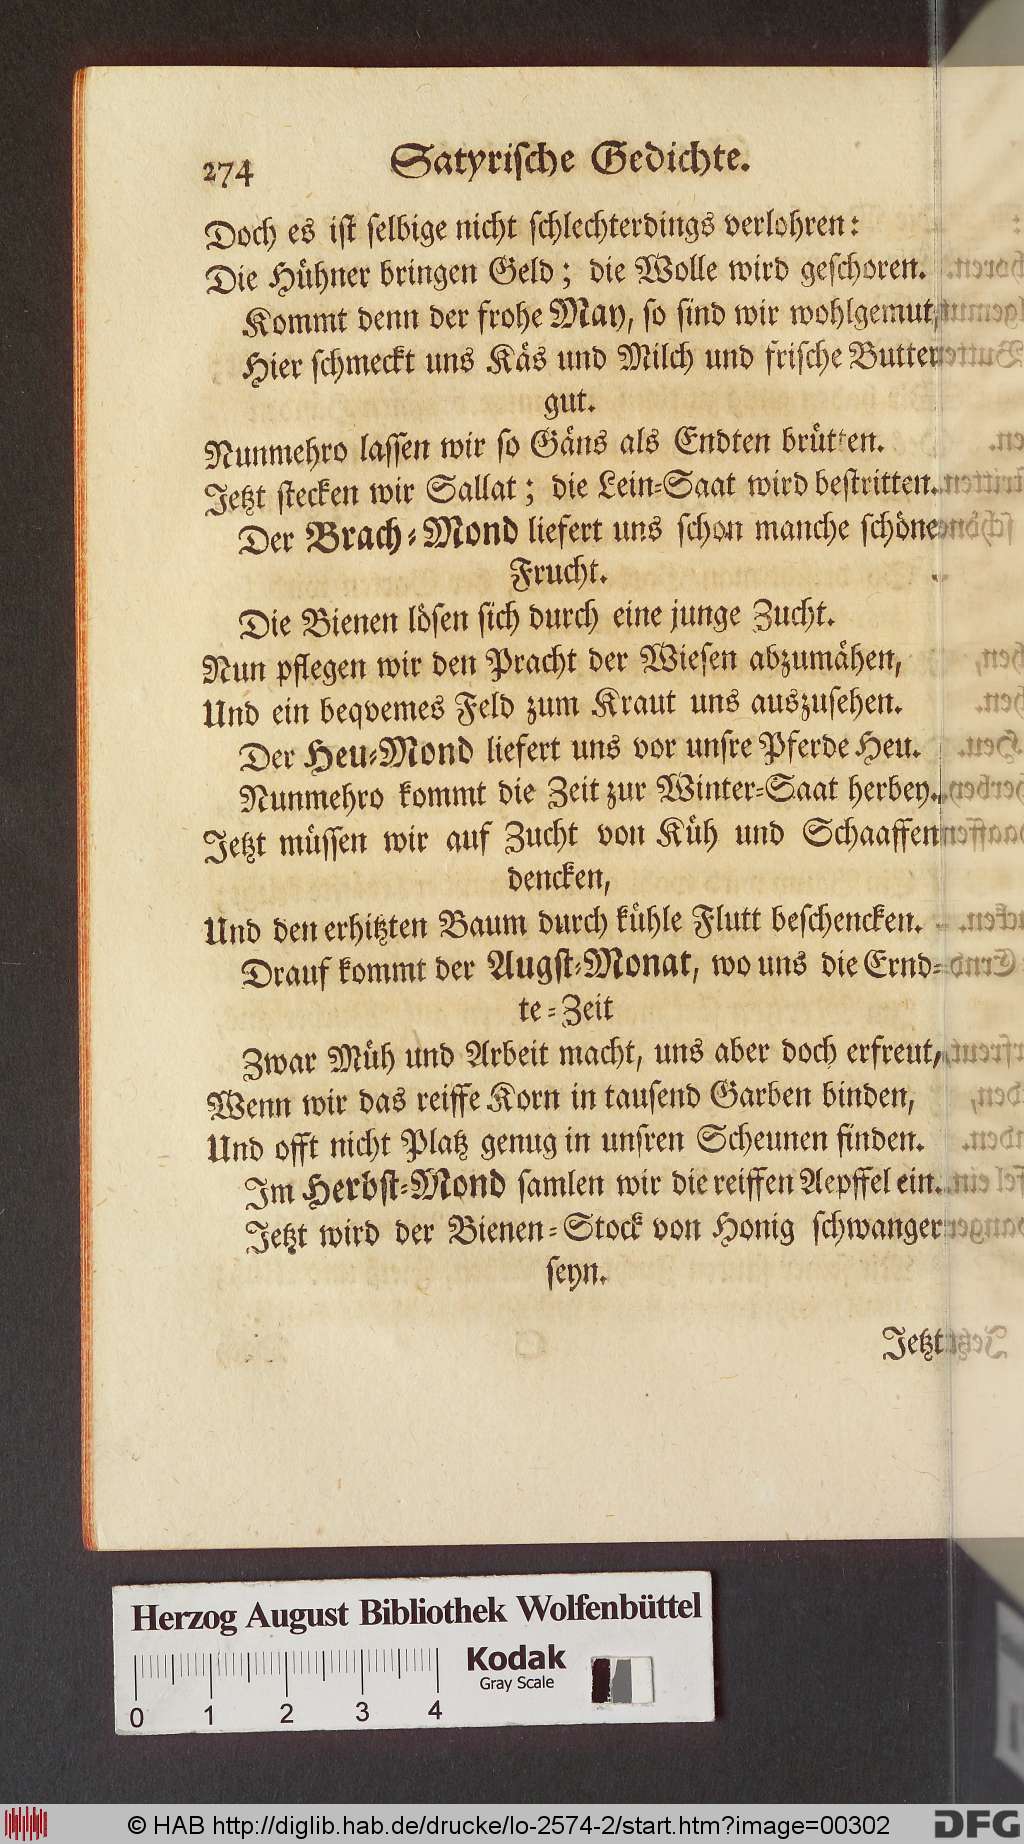 274 Satyrische Gedichte.
Doch es ist selbige nicht schlechterdings verlohren:
Die Hühner bringen Geld; die Wolle wird geschoren.
Kommt denn der frohe May, so sind wir wohlgemut,
Hier schmeckt uns Käs und Milch und frische Butter
gut.
Nunmehro lassen wir so Gäns als Endten brütten.
Jetzt stecken wir Sallat; die Lein-Saat wird bestritten.
Der Brach-Mond liefert uns schon manche schöne
Frucht.
Die Bienen lösen sich durch eine junge Zucht.
Nun pflegen wir den Pracht der Wiesen abzumähen,
Und ein beqvemes Feld zum Kraut uns auszusehen.
Der Heu-Mond liefert uns vor unsre Pferde Heu.
Nunmehro kommt die Zeit zur Winter-Saat herbey.
Jetzt müssen wir auf Zucht von Küh und Schaaffen
dencken,
Und den erhitzten Baum durch kühle Flutt beschencken.
Drauf kommt der Augst-Monat, wo uns die Ernd-
te-Zeit
Zwar Müh und Arbeit macht, uns aber doch erfreut,
Wenn wir das reiffe Korn in tausend Garben binden,
Und offt nicht Platz genug in unsren Scheunen finden.
Im Herbst-Mond samlen wir die reiffen Aepffel ein.
Jetzt wird der Bienen-Stock von Honig schwanger
seyn.
Jetzt
Herzog August Bibliothek Wolfenbüttel
Kodak
Gray Scale
0 1 2 3 4
© HAB http://diglib.hab.de/drucke/lo-2574-2/start.htm?image=00302
DFG